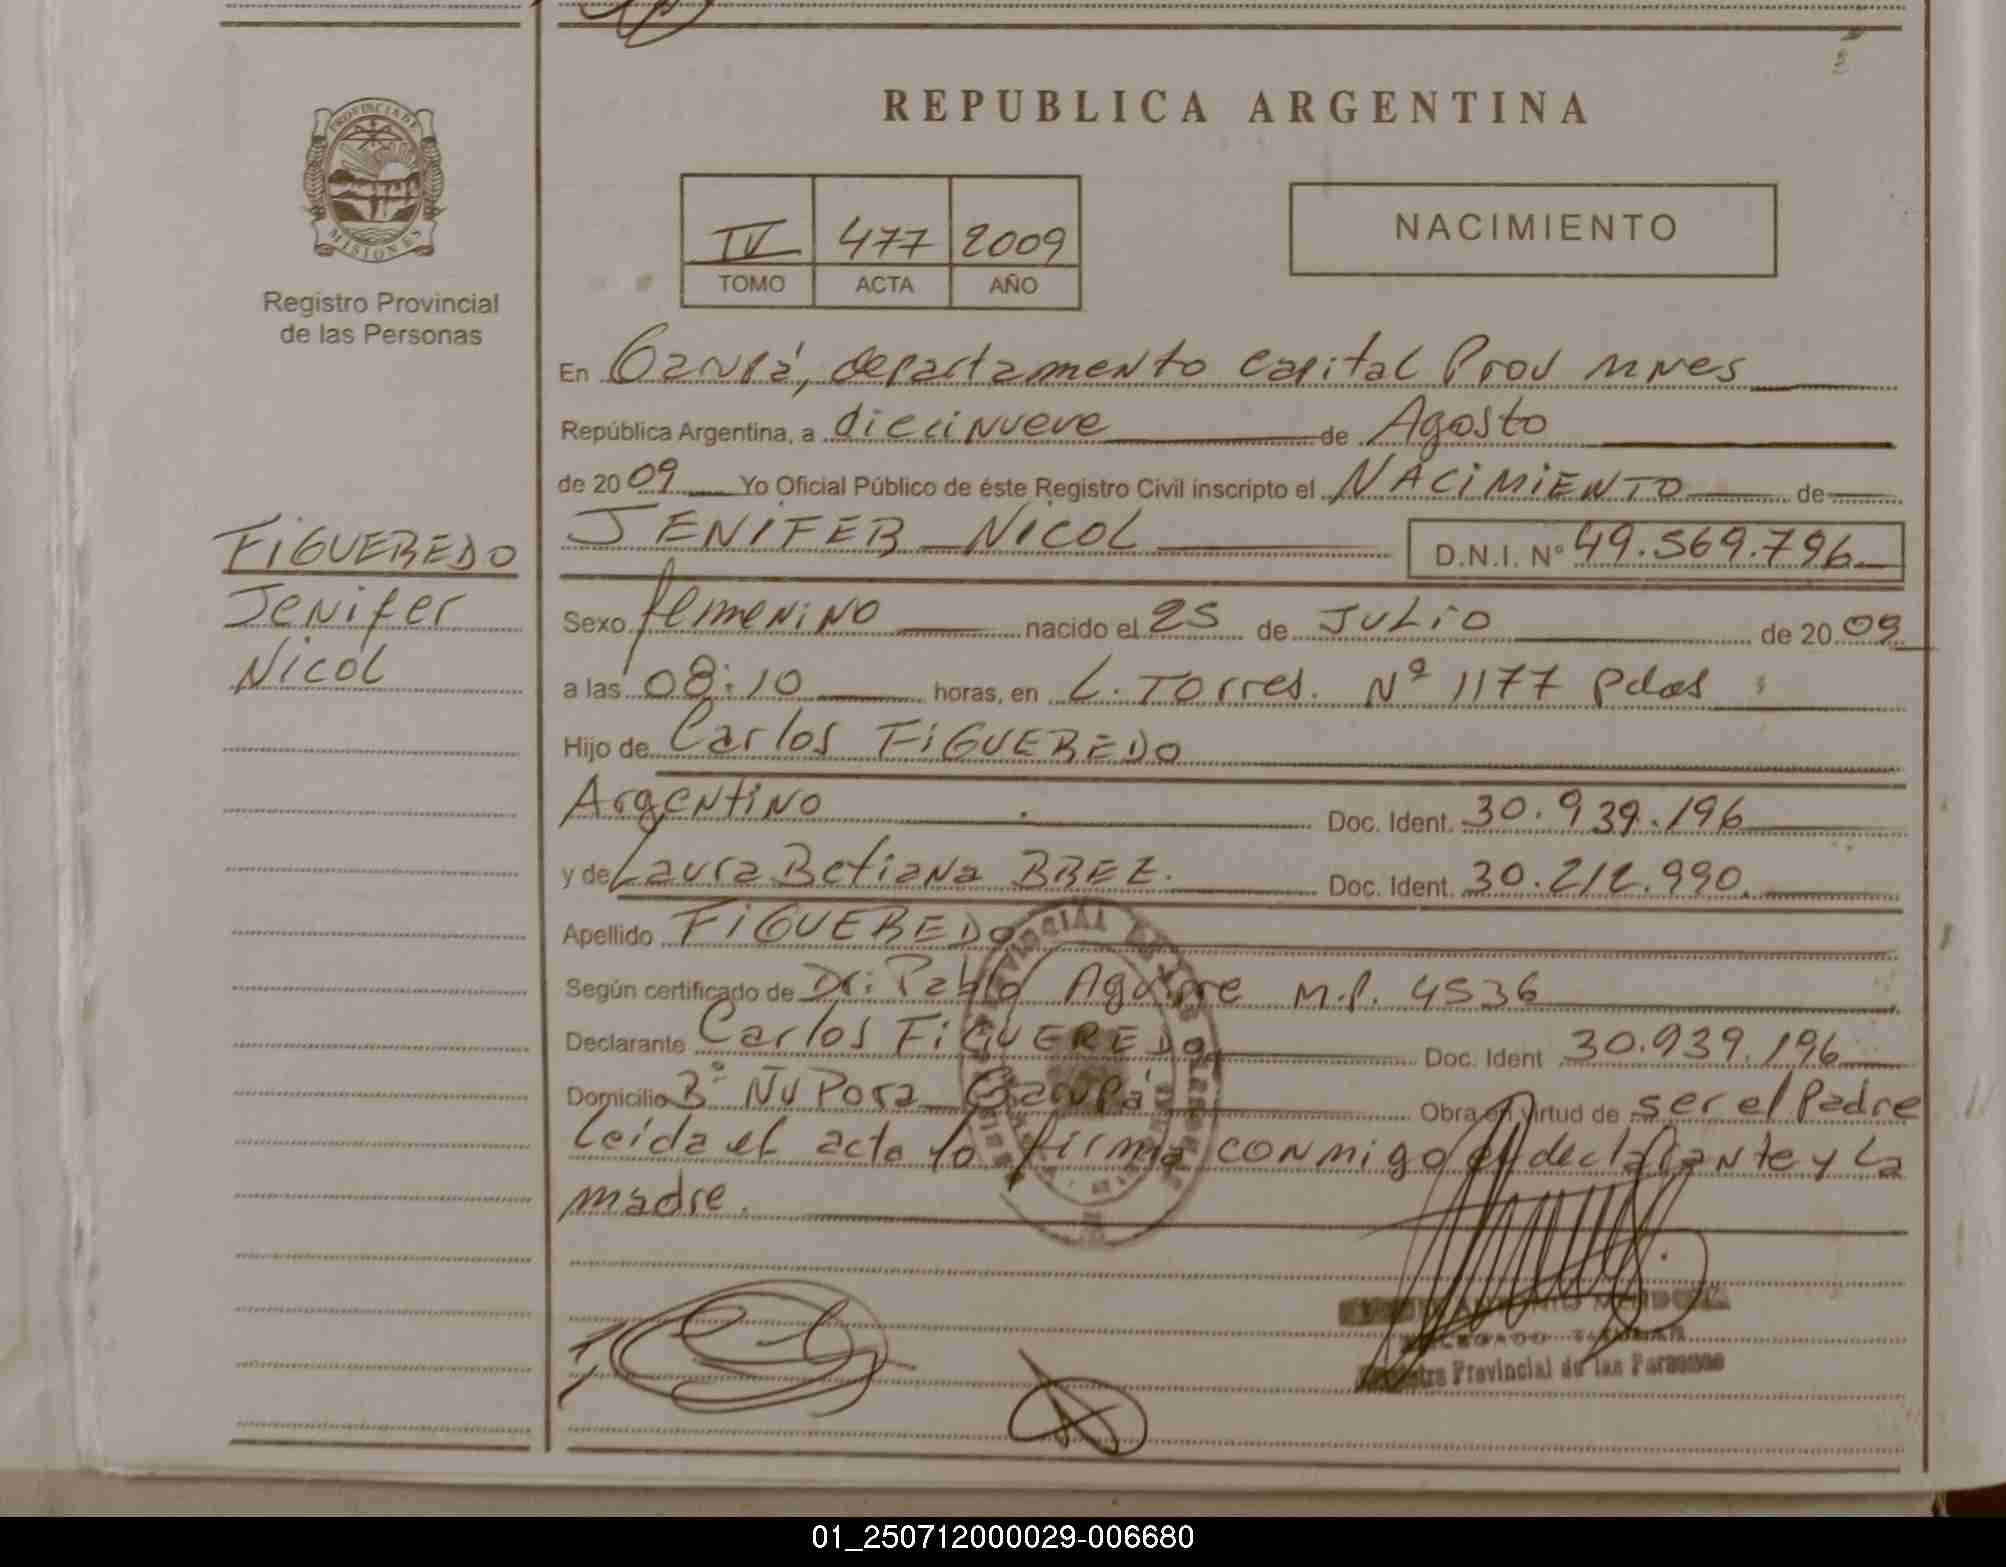 REPUBLICA ARGENTINA
PROVINCIA DE
MISIONES
Registro Provincial
de las Personas
IV 477 2009
TOMO ACTA AÑO
NACIMIENTO
En Garupá, departamento capital Prov Mnes
República Argentina, a diecinueve de Agosto
de 2009 Yo Oficial Público de éste Registro Civil inscripto el NACIMIENTO de
JENIFER NICOL D.N.I. Nº 49.569.796
FIGUEREDO
Jenifer
Nicol
Sexo femenino nacido el 25 de JULIO de 2009
a las 08:10 horas, en L. Torres. Nº 1177 Pdas
Hijo de Carlos FIGUEREDO
Argentino Doc. Ident. 30.939.196
y de Laura Betiana BREZ. Doc. Ident. 30.212.990.
Apellido FIGUEREDO
Según certificado de Dr: Pablo Aguirre M.P. 4536
Declarante Carlos FIGUEREDO Doc. Ident 30.939.196
Domicilio Bº Ñu Pora Garupá Obra en virtud de ser el Padre
leída el acta lo firma conmigo el declarante y la
madre.
ANTONIO MENDOZA
DELEGADO TITULAR
Registro Provincial de las Personas
01_250712000029-006680